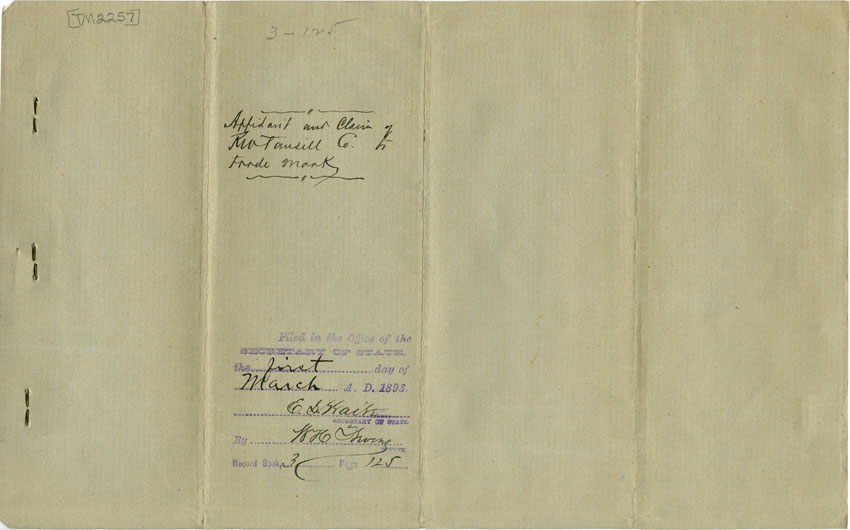 [TM2257]
3-125
Affidavit and Claim of
R W Tansill Co. to
trade mark
Filed in the Office of the
SECRETARY OF STATE,
the first day of
March A. D. 1893.
E. G. Waite
SECRETARY OF STATE.
By W H
DEPUTY.
Record Book, 3 Page 125